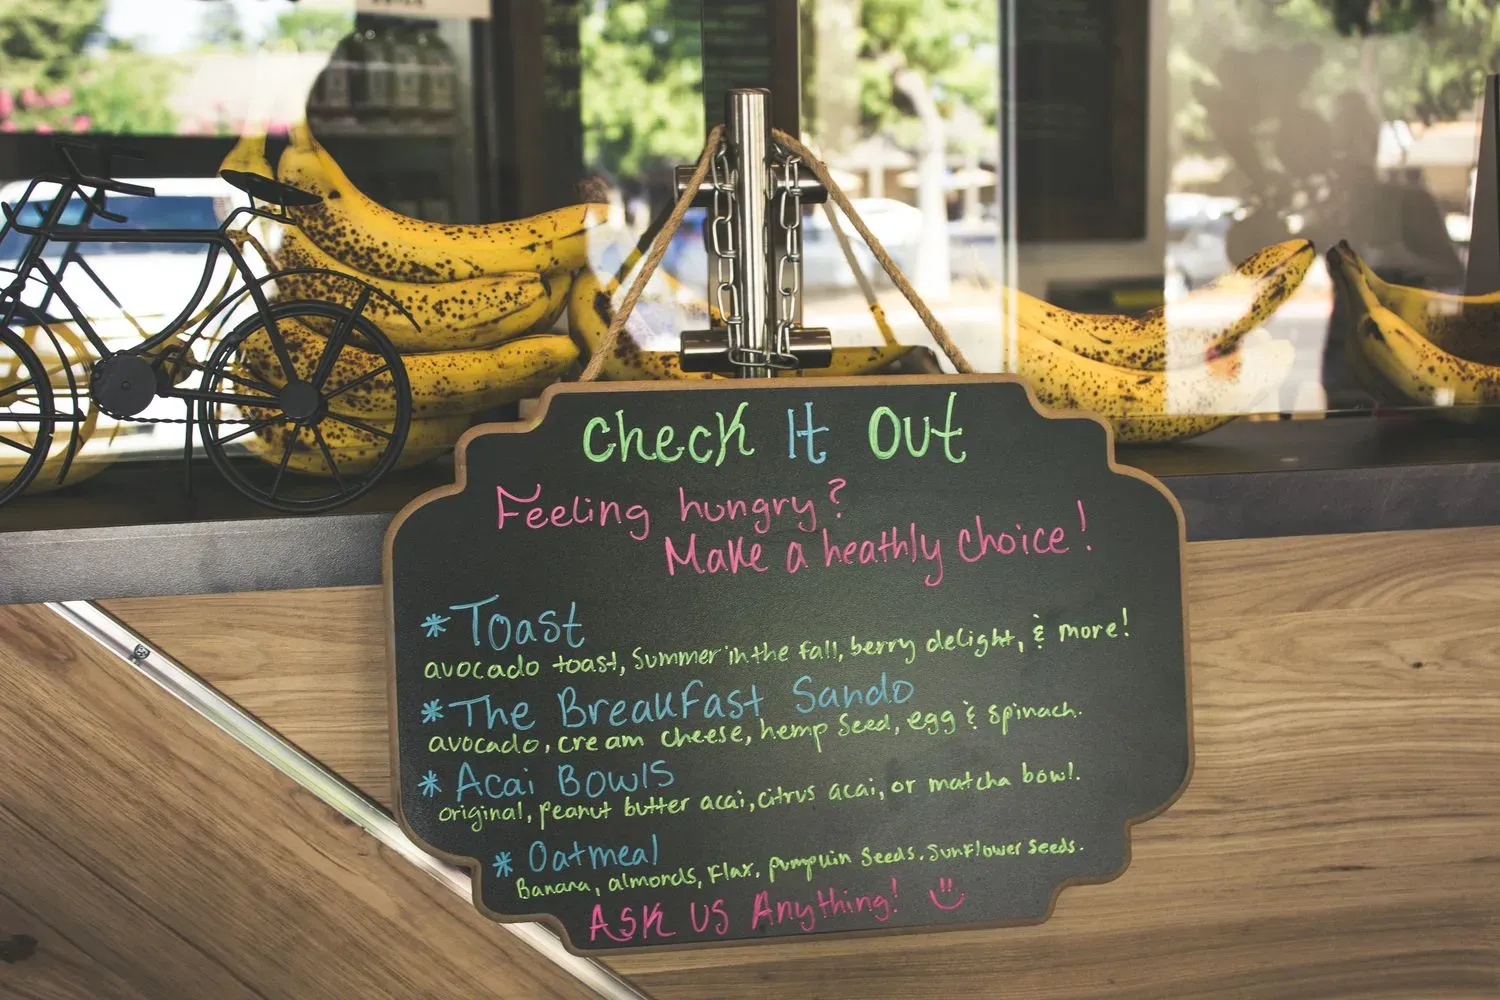 Check It Out
Feeling hungry?
Make a heathly choice!
* Toast
avocado toast, Summer in the fall, berry delight, & more!
* The Breakfast Sando
avocado, cream cheese, hemp Seed, egg & spinach.
* Acai Bowls
original, peanut butter acai, citrus acai, or matcha bowl.
* Oatmeal
Banana, almonds, Flax, pumpkin Seeds, Sunflower Seeds.
ASK US Anything!